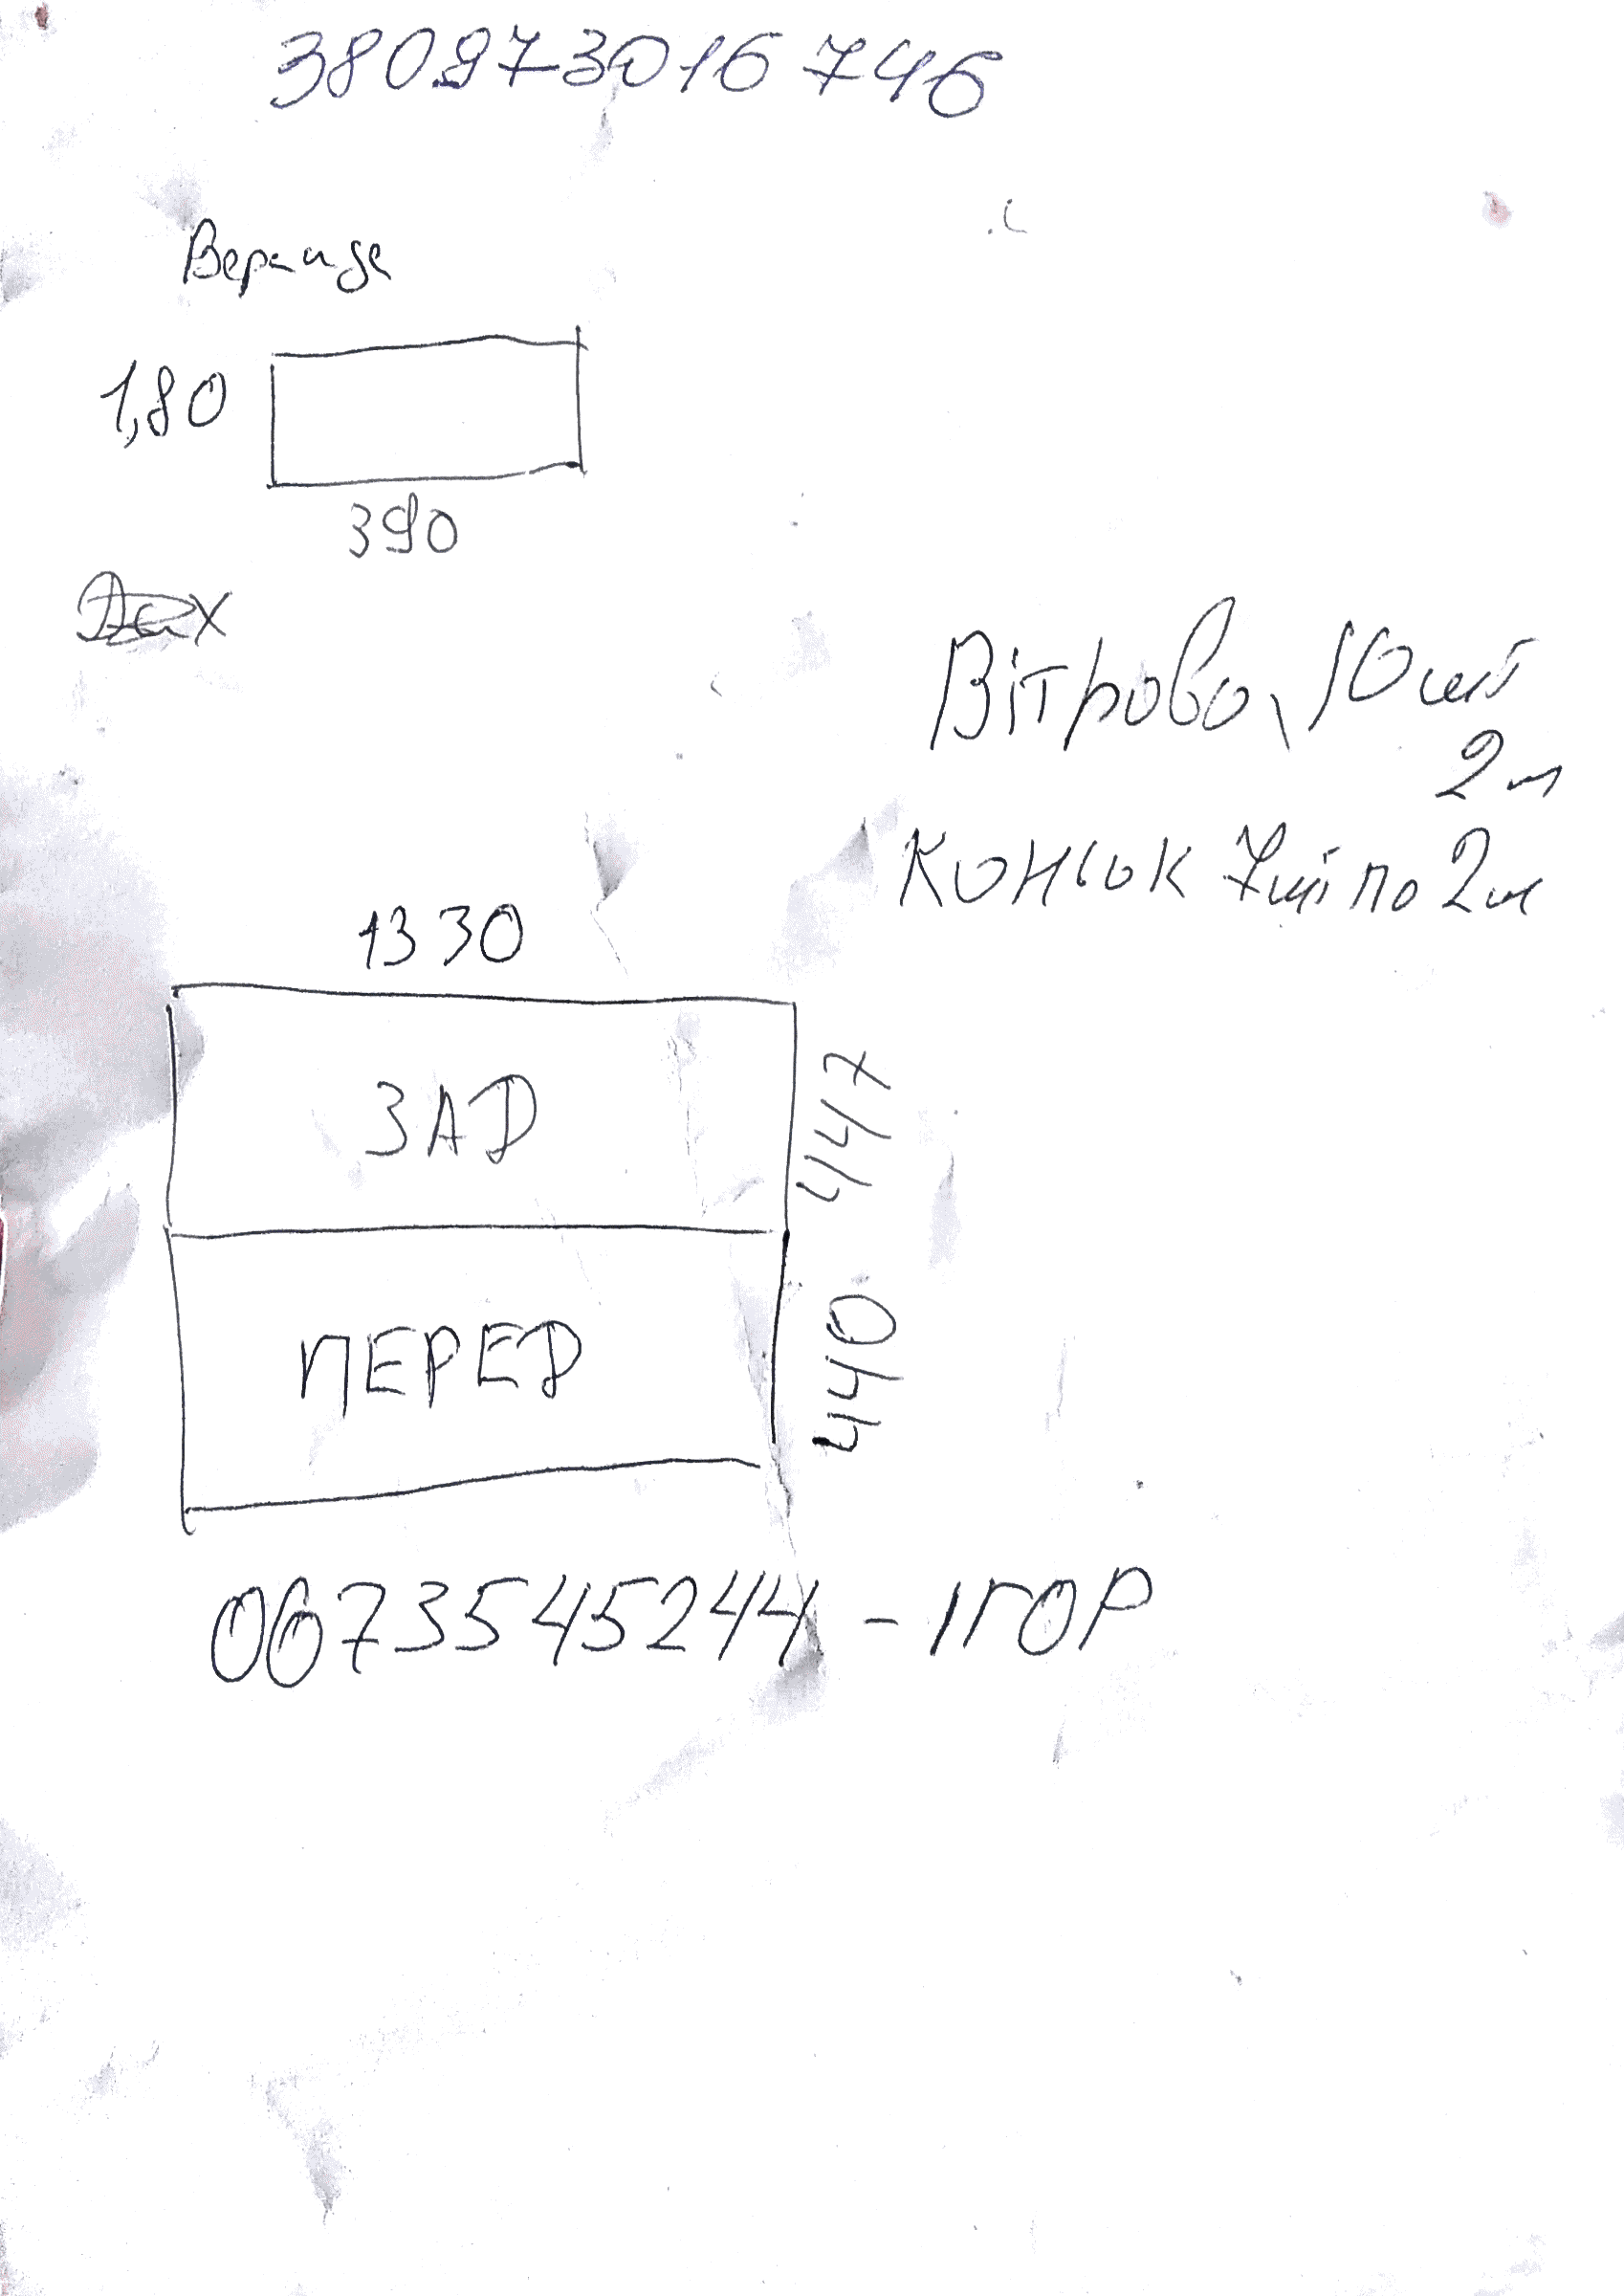 380973016746
Веранда
1,80
390
Дах
Вітрово, 10 шт
2м
Коньок 7шт по 2м
1330
ЗАД
447
ПЕРЕД
440
0673545244 - ІГОР